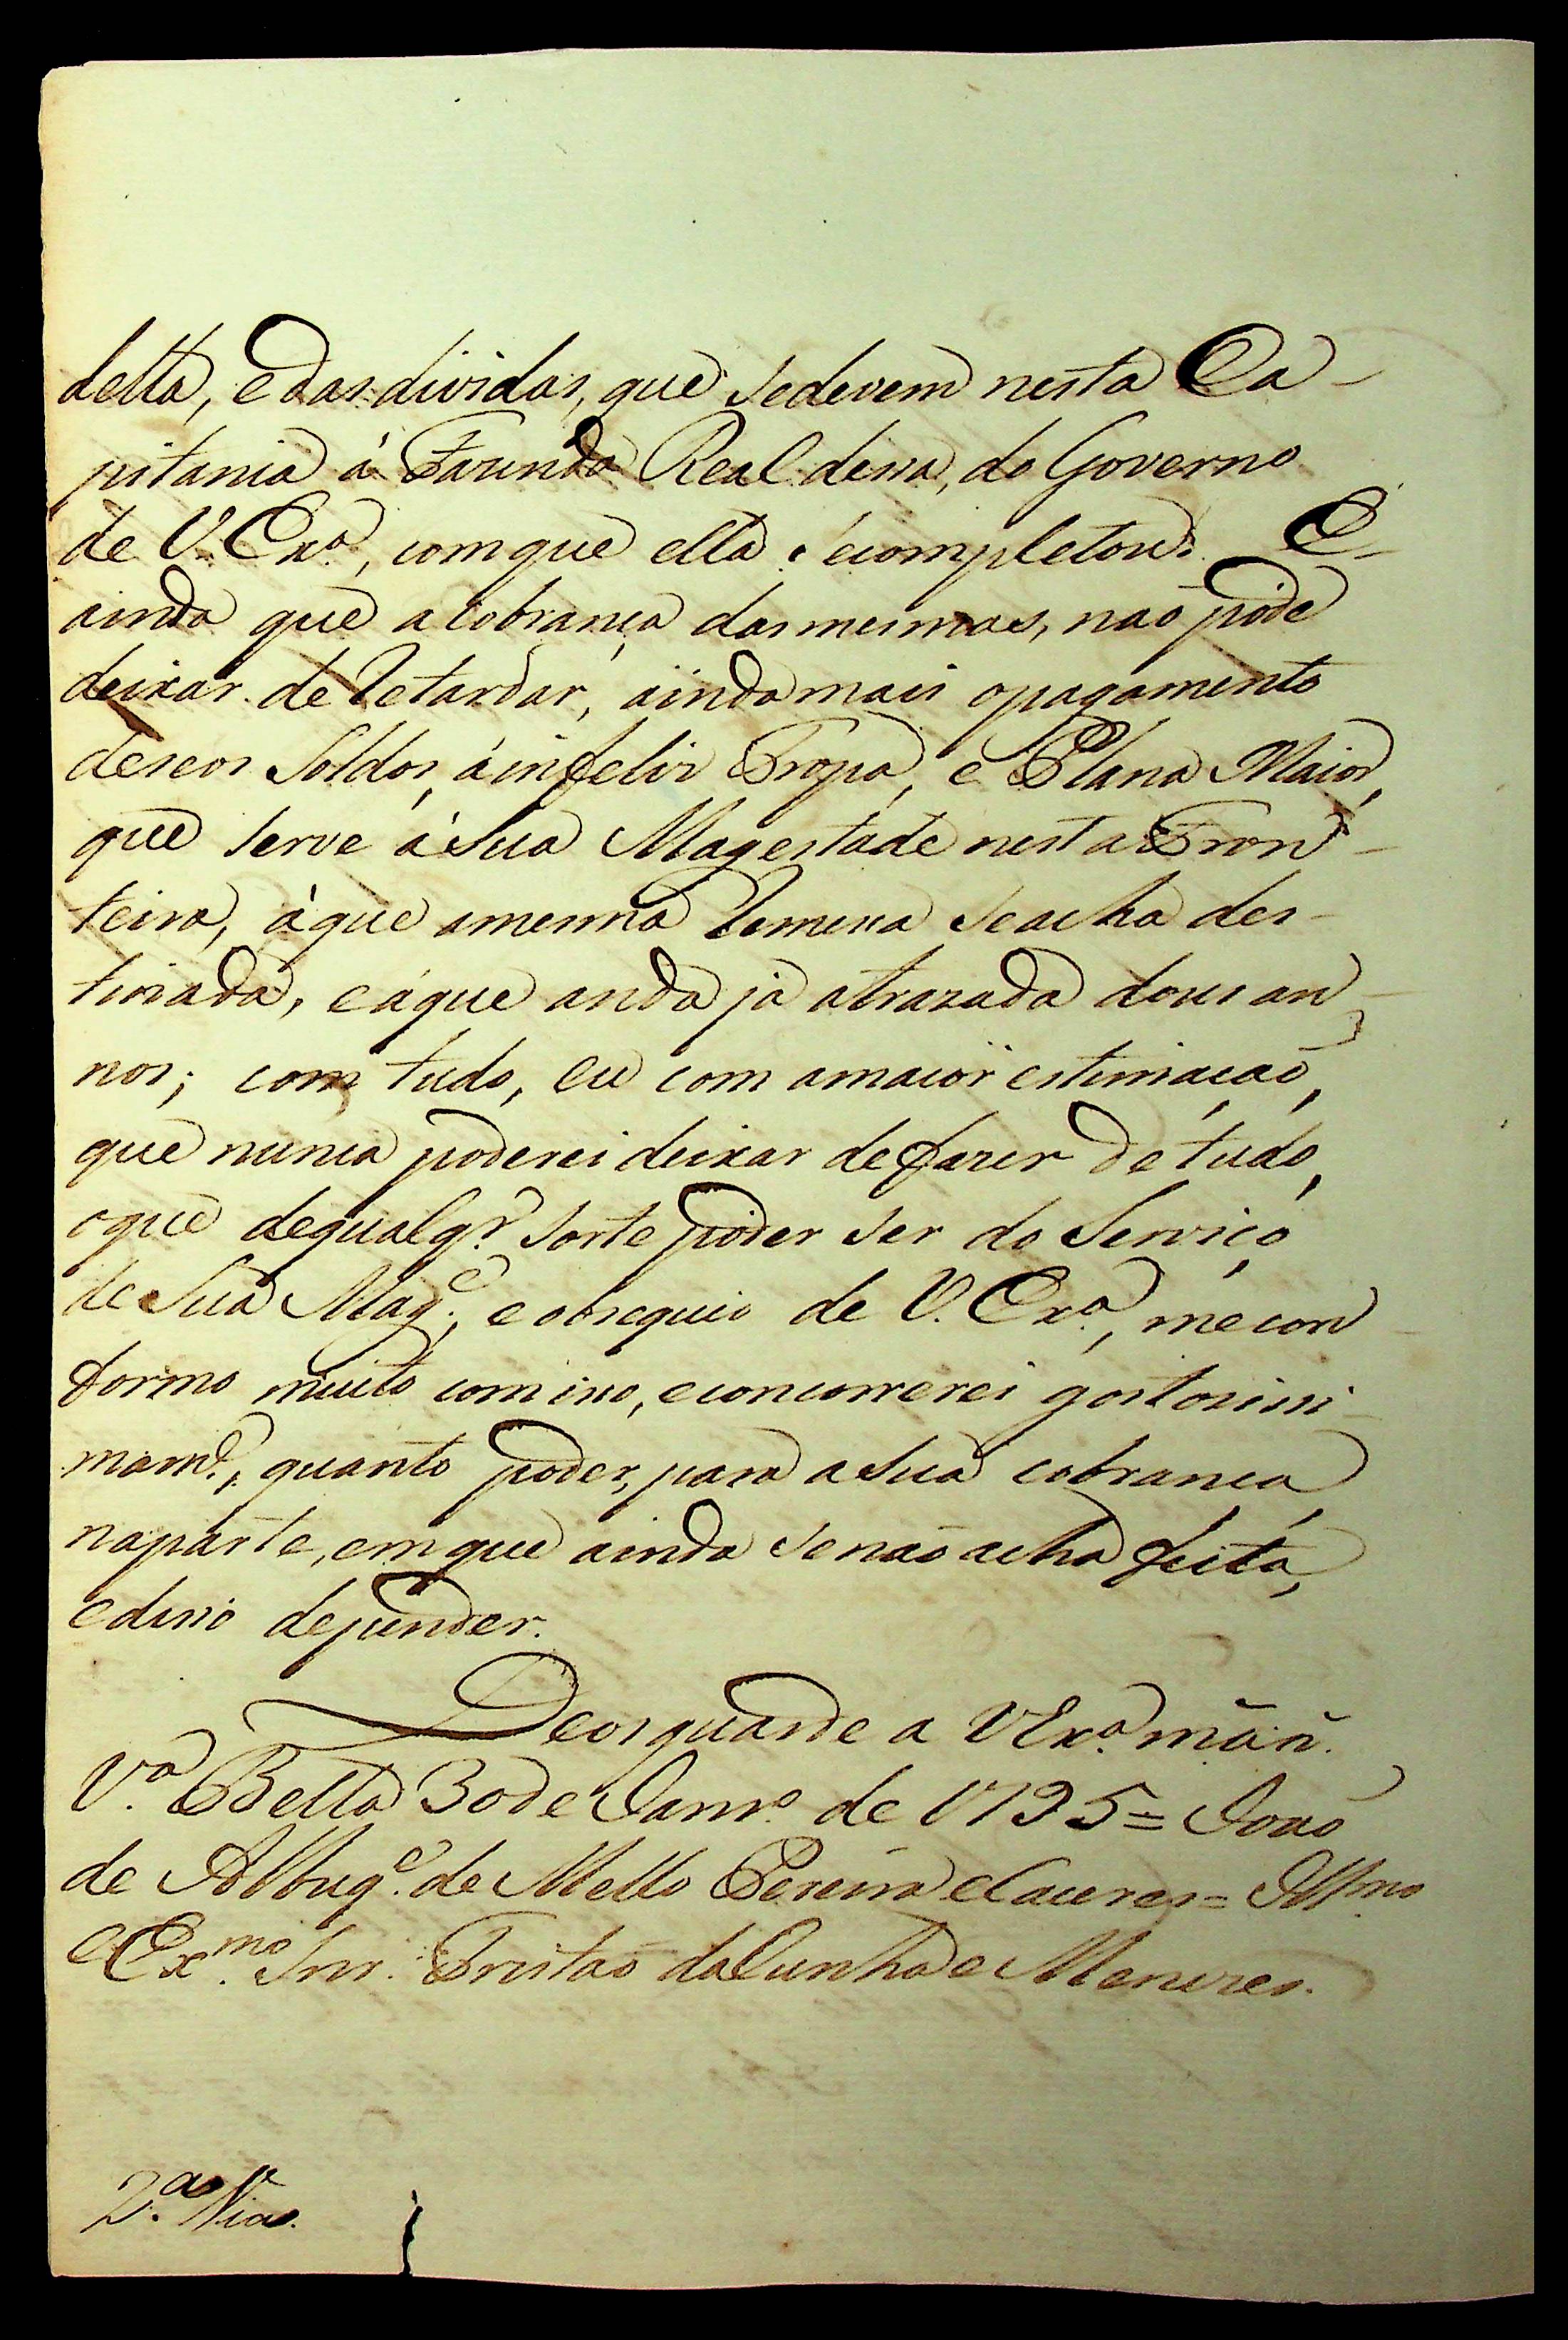 della, e das dividas, que se devem nesta Ca-
pitania á Fazenda Real dessa, do Governo
de V. Exª, com que ella se completou. E
ainda que a cobrança das mesmas, naõ póde
deixar de retardar, ainda mais o pagamento
de seos Soldos, á infeliz Tropa, e Plana Maior,
que serve á Sua Magestade nesta Fron-
teira, á que a mesma remessa se acha des-
tinada, e á que anda já atrazada dous an-
nos; com tudo, eu com a maior estimaçaõ,
que nunca poderei deixar de fazer de tudo,
o que de qualqr. sorte poder ser do Serviço
de Sua Mage., e obsequio de V. Exª, me con-
formo muito com isso, e concorrerei gostosissi-
mamte., quanto poder, para a Sua cobrança
na parte, em que ainda se naõ acha feita,
e disso depender.
Deos guarde a V Exª. m. an.
Vª. Bella 30 de Janro. de 1795 = Joaõ
de Albuqe. de Mello Pereira e Caceres = Illmo
e Exmo. Snr. Tristaõ da Cunha e Menezes.
2ª. Via.